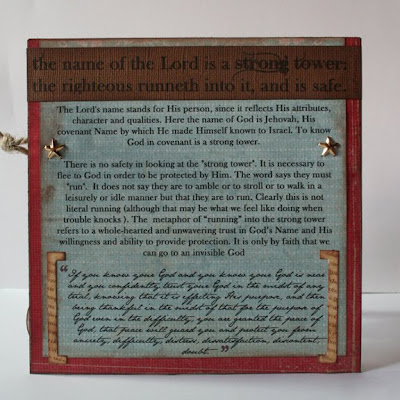 the name of the Lord is a strong tower:
the righteous runneth into it, and is safe.
The Lord's name stands for His person, since it reflects His attributes,
character and qualities. Here the name of God is Jehovah, His
covenant Name by which He made Himself known to Israel. To know
God in covenant is a strong tower.
There is no safety in looking at the "strong tower". It is necessary to
flee to God in order to be protected by Him. The word says they must
"run". It does not say they are to amble or to stroll or to walk in a
leisurely or idle manner but that they are to run, Clearly this is not
literal running (although that may be what we feel like doing when
trouble knocks ). The metaphor of "running" into the strong tower
refers to a whole-hearted and unwavering trust in God's Name and His
willingness and ability to provide protection. It is only by faith that we
can go to an invisible God
“ If you know your God and you know your God is near
and you confidently trust your God in the midst of any
trial, knowing that it is effecting His purpose, and then
being thankful in the midst of that for the purpose of
God even in the difficulty, you are granted the peace of
God, that peace will guard you and protect you from
anxiety, difficulty, distress, dissatisfaction, discontent,
doubt— ”